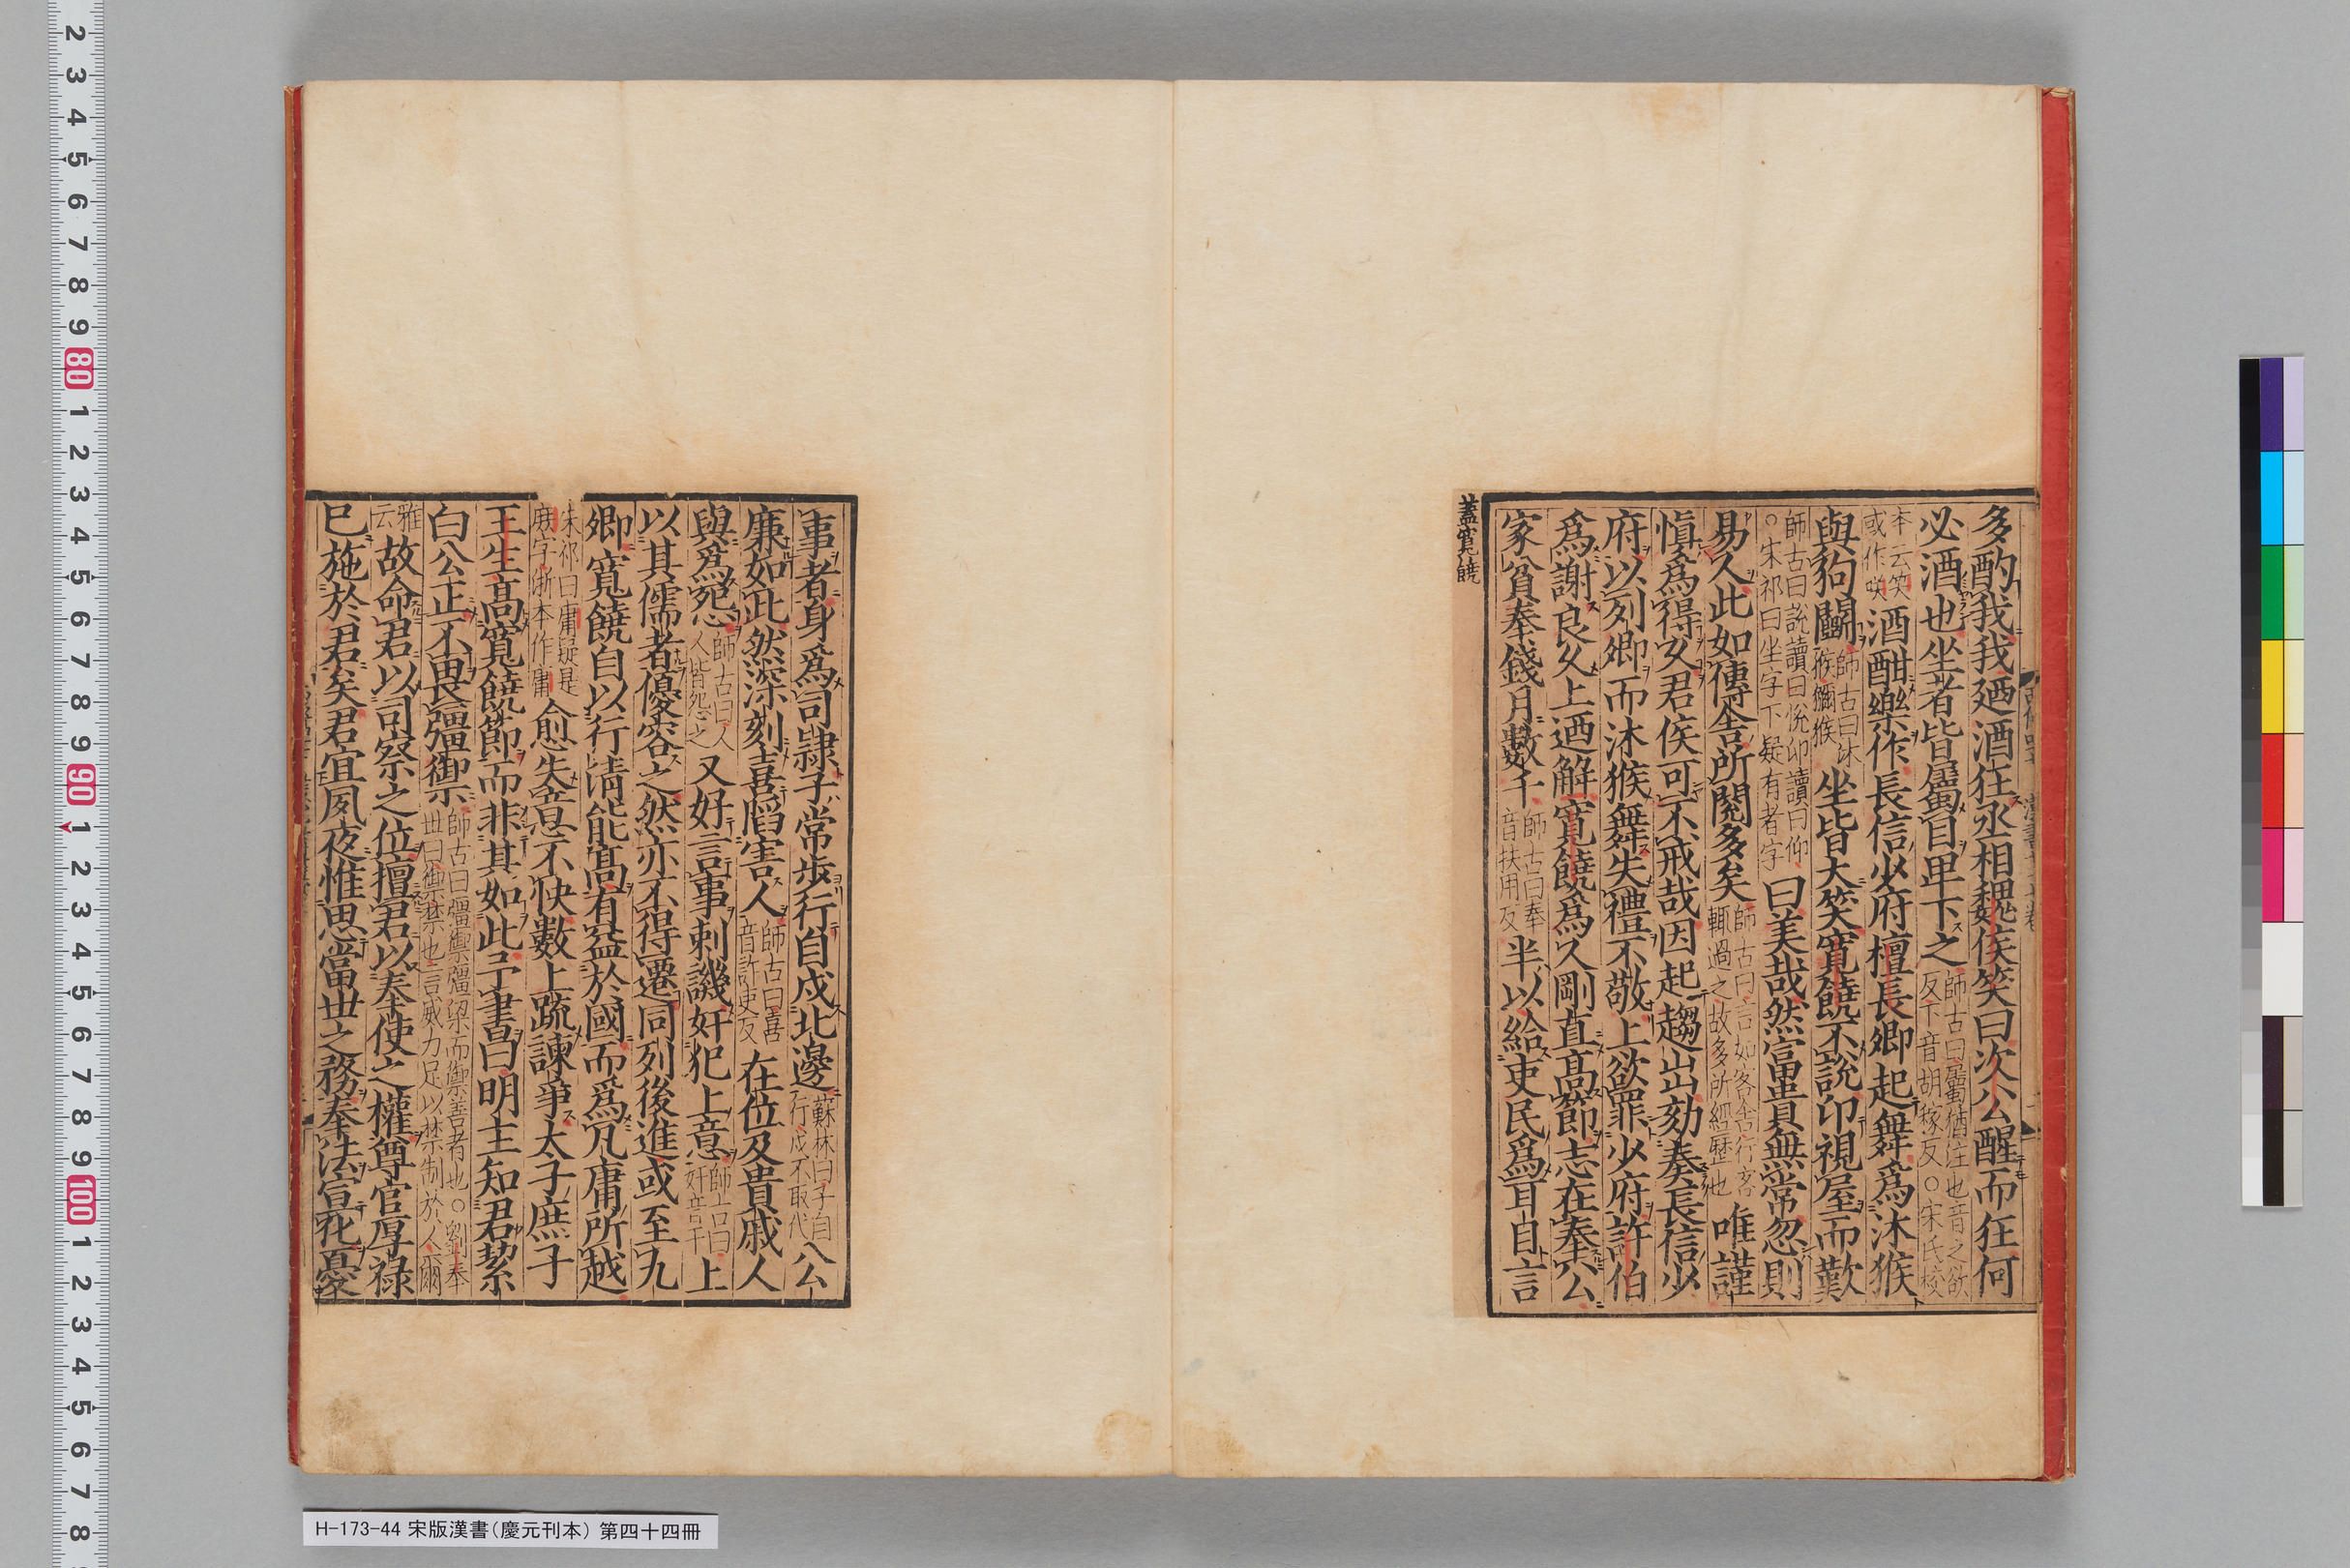 多酌我我廼酒狂丞相魏侯笑曰次公醒而狂何
必酒也坐者皆屬目卑下之師古曰屬猶注也音之欲反下音胡稼反○宋氏校
本云笑或作咲酒酣樂作長信少府檀長卿起舞爲沐猴
與狗鬭師古曰沐猴獼猴坐皆大笑寬饒不說卬視屋而歎
師古曰說讀曰悅卬讀曰仰○宋祁曰坐字下疑有者字曰美哉然富貴無常忽則
易人此如傳舍所閱多矣師古曰言如客舍行客輒過之故多所經歷也唯謹
愼爲得久君侯可不戒哉因起趨出劾奏長信少
府以列卿而沐猴舞失禮不敬上欲罪少府許伯
爲謝良久上廼解寬饒爲人剛直高節志在奉公
家貧奉錢月數千師古曰奉音扶用反半以給吏民爲耳目言
蓋寬饒
事者身爲司隷子常步行自戍北邊蘇林曰子自行戍不取代公
廉如此然深刻喜陷害人師古曰喜音許吏反在位及貴戚人
與爲怨師古曰人人皆怨之又好言事刺譏奸犯上意師古曰奸音干上
以其儒者優容之然亦不得遷同列後進或至九
卿寬饒自以行清能高有益於國而爲凡庸所越
宋祁曰庸疑是庻字浙本作庸愈失意不快數上疏諫爭太子庶子
王生高寬饒節而非其如此予書曰明主知君絜
白公正不畏彊禦師古曰彊禦彊梁而禦善者也○劉奉世曰禦禁也言威力足以禁制於人爾
雅云故命君以司察之位擅君以奉使之權尊官厚祿
已施於君矣君宜夙夜惟思當世之務奉法宣化憂
H-173-44 宋版漢書(慶元刊本) 第四十四冊